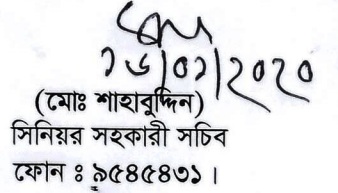 ২৬/০১/২০২০
(মোঃ শাহাবুদ্দিন)
সিনিয়র সহকারী সচিব
ফোন ঃ ৯৫৪৫৪৩১।